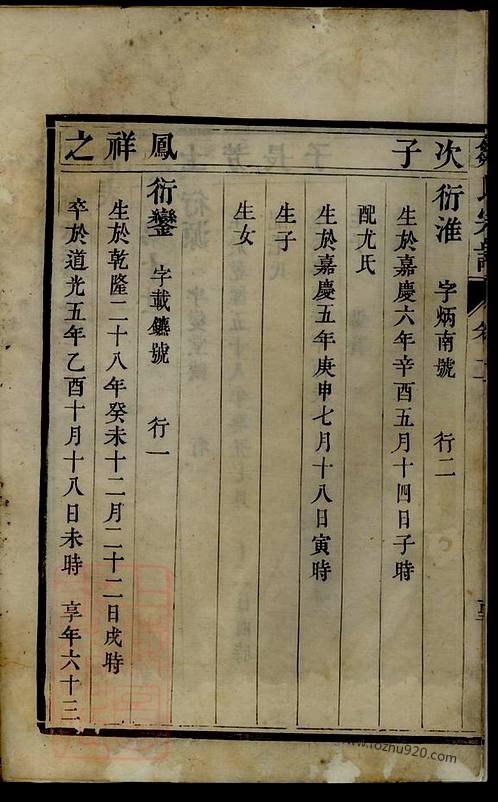 氏宗譜 卷
次子
衍淮 字炳南號 行二
生於嘉慶六年辛酉五月十四日子時
配尤氏
生於嘉慶五年庚申七月十八日寅時
生子
生女
鳳祥之
衍鑾 字載鑣號 行一
生於乾隆二十八年癸未十二月二十二日戌時
卒於道光五年乙酉十月十八日未時 享年六十三
www.fozhu920.com